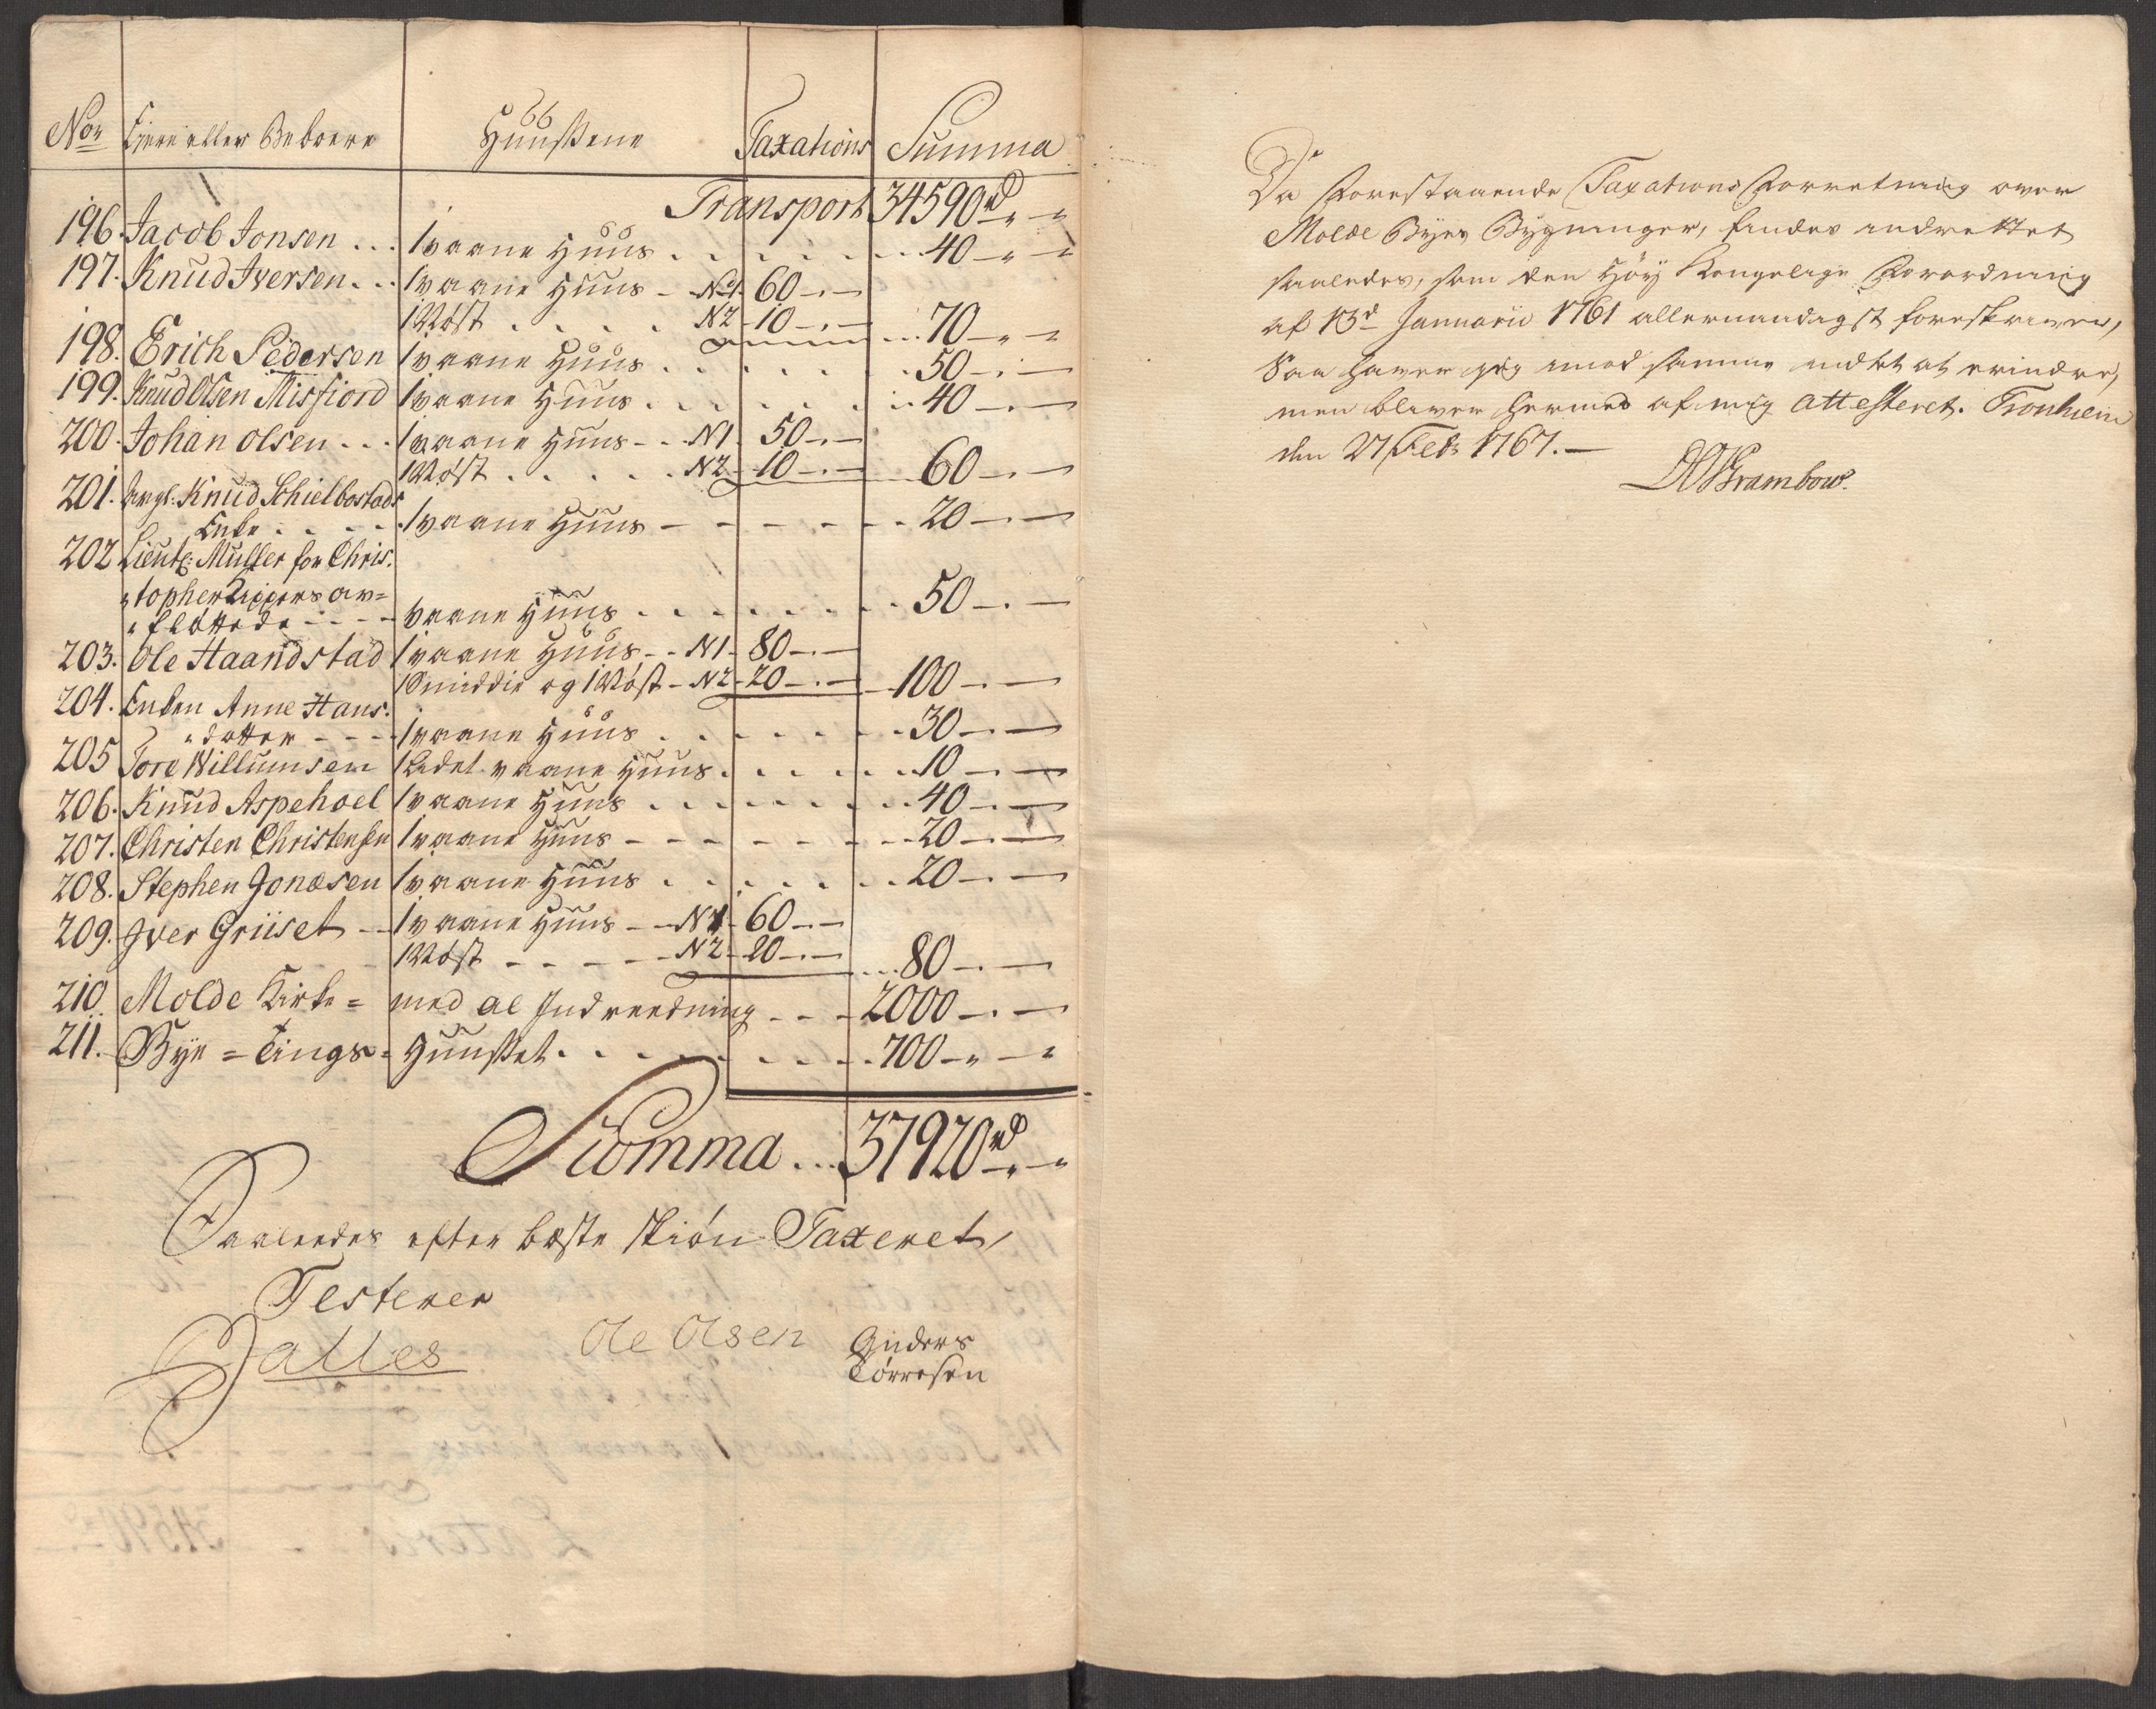 No Eiere eller Beboere Huusene Taxations Summa
Transport 34590 rd " "
196. Jacob Jonsen . . . 1 vaane Huus . . . . . . . 40 - " -
197. Knud Iversen . . 1 vaane Huus - No 1. 60 - . -
1 Nøst . . . . N2 - 10 - . - . . . 70 - " -
198. Erich Pedersen 1 vaane Huus . . . . . . 50 - . -
199. Knud Olsen Misfiord 1 vaane Huus . . . . . . 40 - . -
200. Johan Olsen . . . 1 vaane Huus - - N1. 50 - . -
1 Nøst . . . . . N2 - 10 - . - 60 - . -
201. Knud Schielbostads
Enke . . . . . 1 vaane Huus - - - - - - 20 - . -
202 Lieut: Muller for Chris.
" topher
vaane Huus . . . . . . . 50 - . -
203. Ole Haandstad 1 vaane Huus - - N1 - 80 - . -
1 Smiddie og 1 Nøst - N2 - 20 - . - 100 - . -
204. Enken Anne Hans:
" datter - - - 1 vaane Huus . . . . . . 30 - . -
205 Tore Willumsen 1 Lidet vaane Huus . . . . . 10 - . -
206. Knud Aspehoel 1 vaane Huus . . . . . . . 40 - . -
207. Christen Christensen 1 vaane Huus - - - - - - - 20 - . -
208. Stephen Jonæsen 1 vaane Huus . . . . . . 20 - . -
209. Iver Griiset - - 1 vaane Huus - - N1 - 60 - . -
1 Nøst - - - - - N2 - 20 - . - . . . 80 - . -
210. Molde Kirke = med al Indreedning - - - 2000 - . -
211. Bye = Tings = Huuset . . . . . . . . 700 - " - "
Summa . . . 37920 rd - " - "
Saaledes efter bæste skiøn Taxeret,
Testerer
Salles Ole Olsen Anders
Torresen
Da Forestaaende Taxations Forretning over
Molde Byes Bygninger, findes indrettet
saaledes, som den Høy Kongelige Forordning
af 13d Januarii 1761 allernaadigst foreskriver,
Saa haver jeg imod samme indtet at erindre,
men bliver hermed af mig attesteret. Tronhiem
den 27 Feb: 1767. -
Krambow.